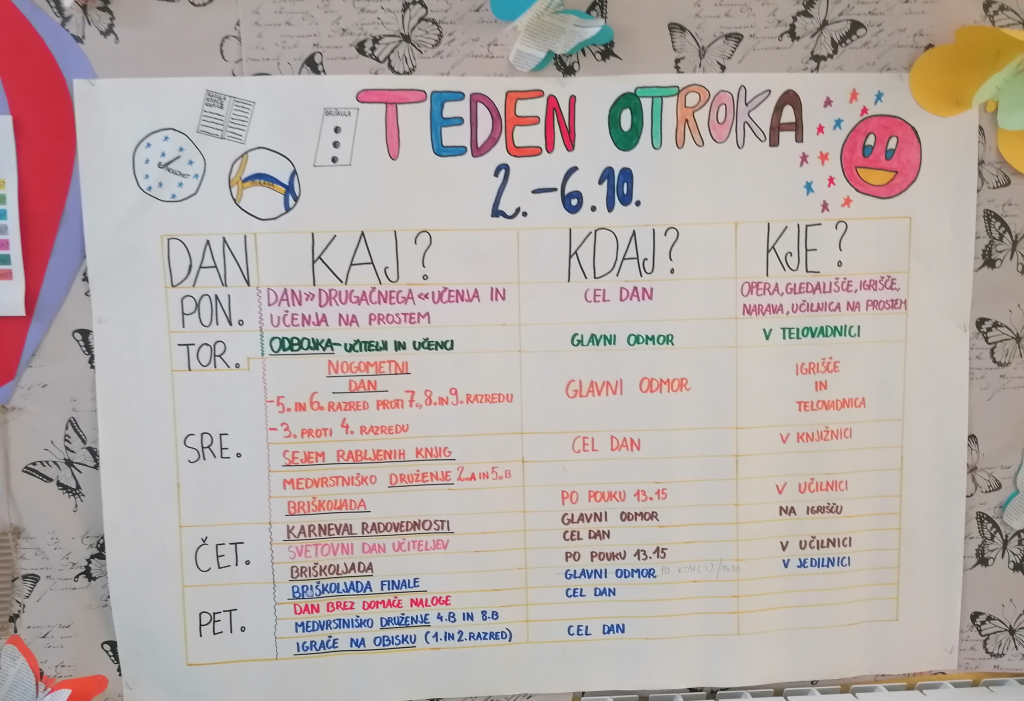 BRIŠKULA
TEDEN OTROKA
2.-6.10.
DAN KAJ? KDAJ? KJE?
PON. DAN »DRUGAČNEGA« UČENJA IN CEL DAN OPERA, GLEDALIŠČE, IGRIŠČE,
UČENJA NA PROSTEM NARAVA, UČILNICA NA PROSTEM
TOR. ODBOJKA - UČITELJI IN UČENCI GLAVNI ODMOR V TELOVADNICI
SRE. NOGOMETNI
DAN GLAVNI ODMOR IGRIŠČE
IN
TELOVADNICA
-5. IN 6. RAZRED PROTI 7., 8. IN 9. RAZREDU
-3. PROTI 4. RAZREDU
SEJEM RABLJENIH KNJIG CEL DAN V KNJIŽNICI
MEDVRSTNIŠKO DRUŽENJE 2.A IN 5.B
BRIŠKOLJADA PO POUKU 13.15 V UČILNICI
ČET. KARNEVAL RADOVEDNOSTI GLAVNI ODMOR NA IGRIŠČU
SVETOVNI DAN UČITELJEV CEL DAN
BRIŠKOLJADA PO POUKU 13.15 V UČILNICI
PET. BRIŠKOLJADA FINALE GLAVNI ODMOR V JEDILNICI
DAN BREZ DOMAČE NALOGE CEL DAN
MEDVRSTNIŠKO DRUŽENJE 4.B IN 8.B
IGRAČE NA OBISKU (1. IN 2. RAZRED) CEL DAN